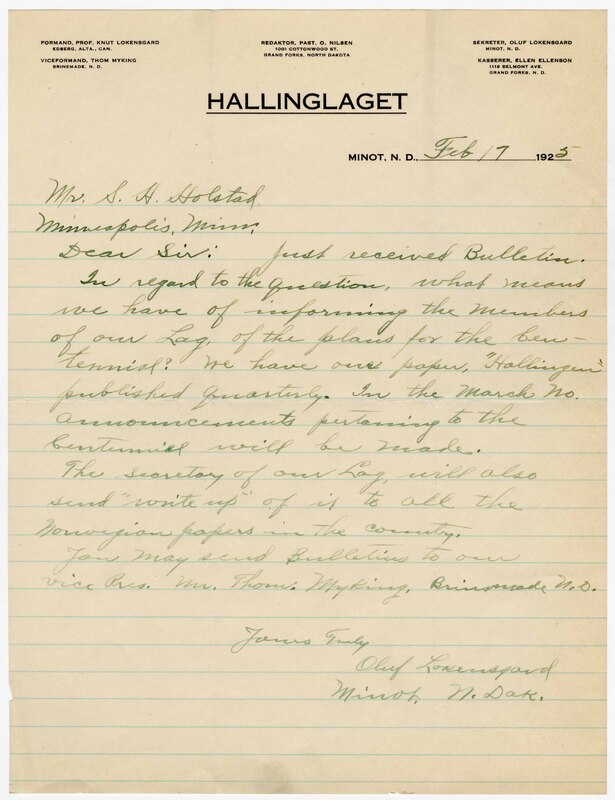 FORMAND, PROF. KNUT LOKENSGARD
EDBERG, ALTA., CAN.
VICEFORMAND, THOM MYKING
BRINSMADE, N. D.
REDAKTOR, PAST. O. NILSEN
1001 COTTONWOOD ST.
GRAND FORKS, NORTH DAKOTA
SEKRETER, OLUF LOKENSGARD
MINOT, N. D.
KASSERER, ELLEN ELLENSON
1119 BELMONT AVE.
GRAND FORKS, N. D.
HALLINGLAGET
MINOT, N. D., Feb 17 1925
Mr. S. H. Holstad
Minneapolis, Minn.
Dear Sir: Just received Bulletin.
In regard to the question, what means
we have of informing the members
of our Lag, of the plans for the Cen-
tennial? We have our paper, "Hallingen"
published quarterly. In the March No.
announcements pertaining to the
Centennial will be made.
The secretary of our Lag, will also
send "write up" of it to all the
Norwegian papers in the county.
You may send Bulletins to our
vice Pres. Mr. Thom. Myking, Brinsmade N.D.
Yours Truly
Oluf Lokensgard
Minot, N. Dak.